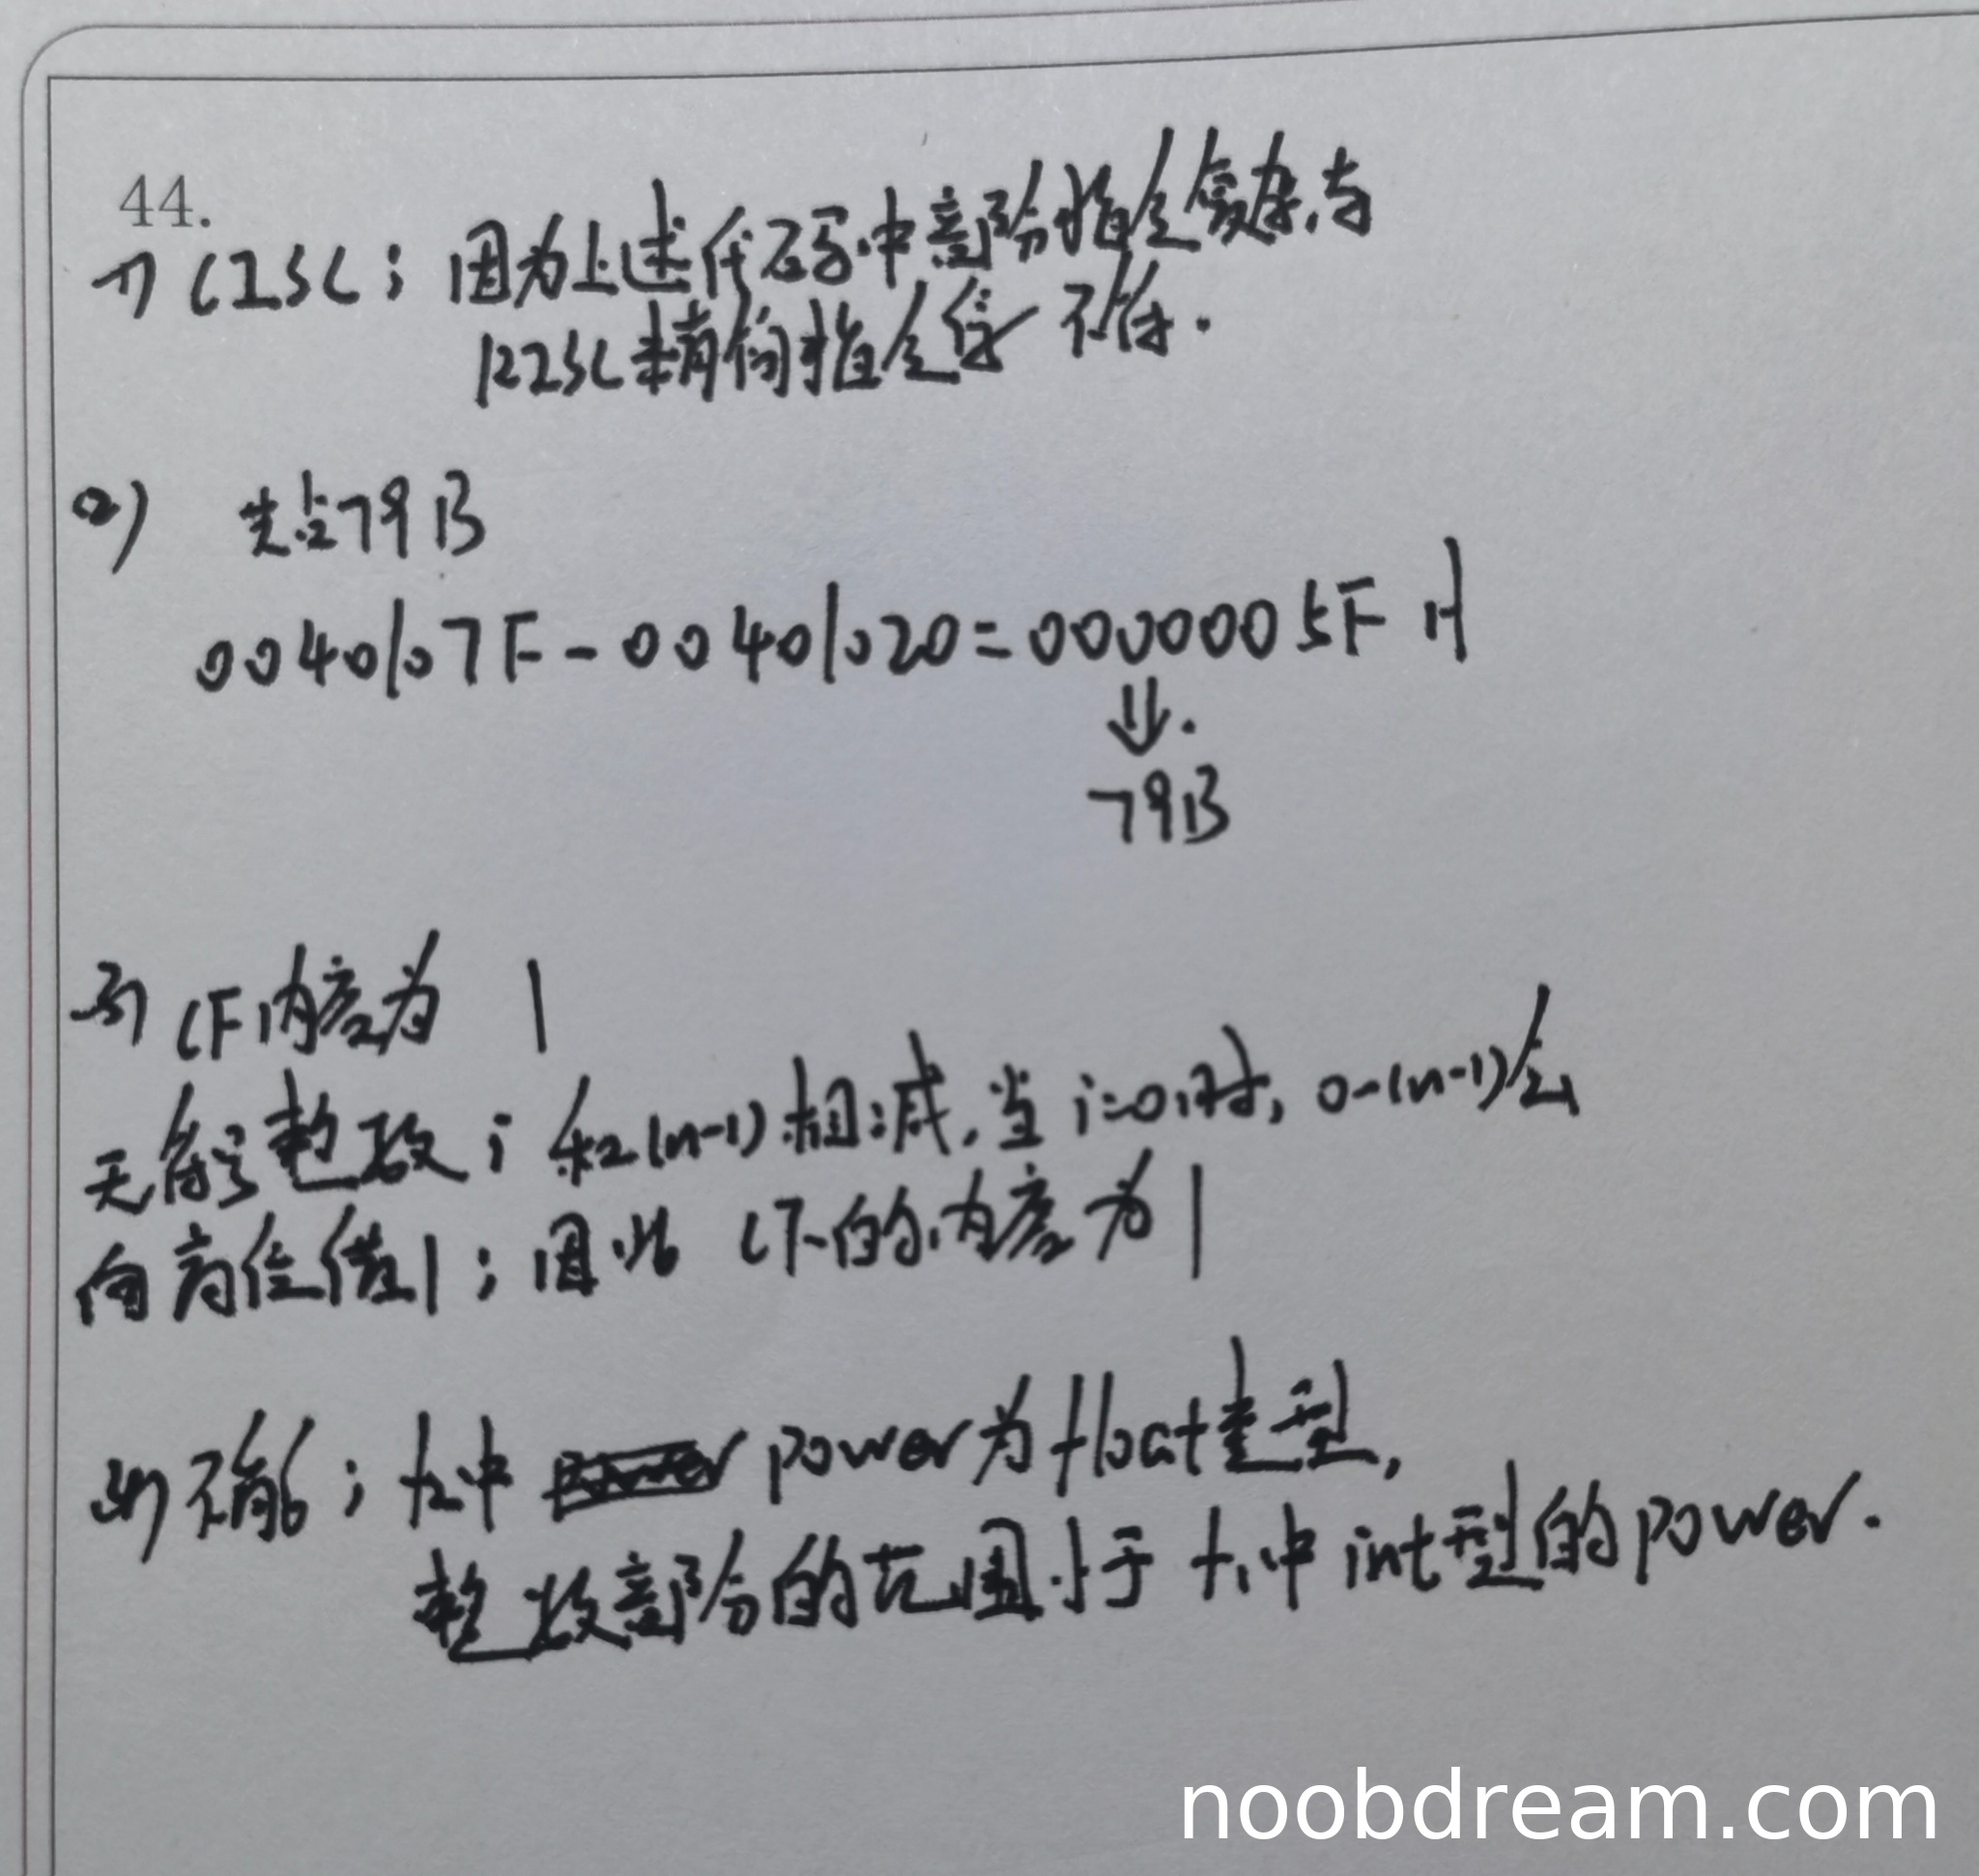 44.
(1) CISC；因为上述代码中部分指令复杂，与
RISC精简指令集不符.
(2) 共占79B
0040107F-00401020=0000005FH
⇓.
79B
(3) CF内容为 1
无符号整数 i 和(n-1)相减，当i=0时，0-(n-1)会
向高位借1；因此 CF的内容为1
(4) 不能；f2中 power为float类型，
整数部分的范围小于 f1中int型的power.
noobdream.com